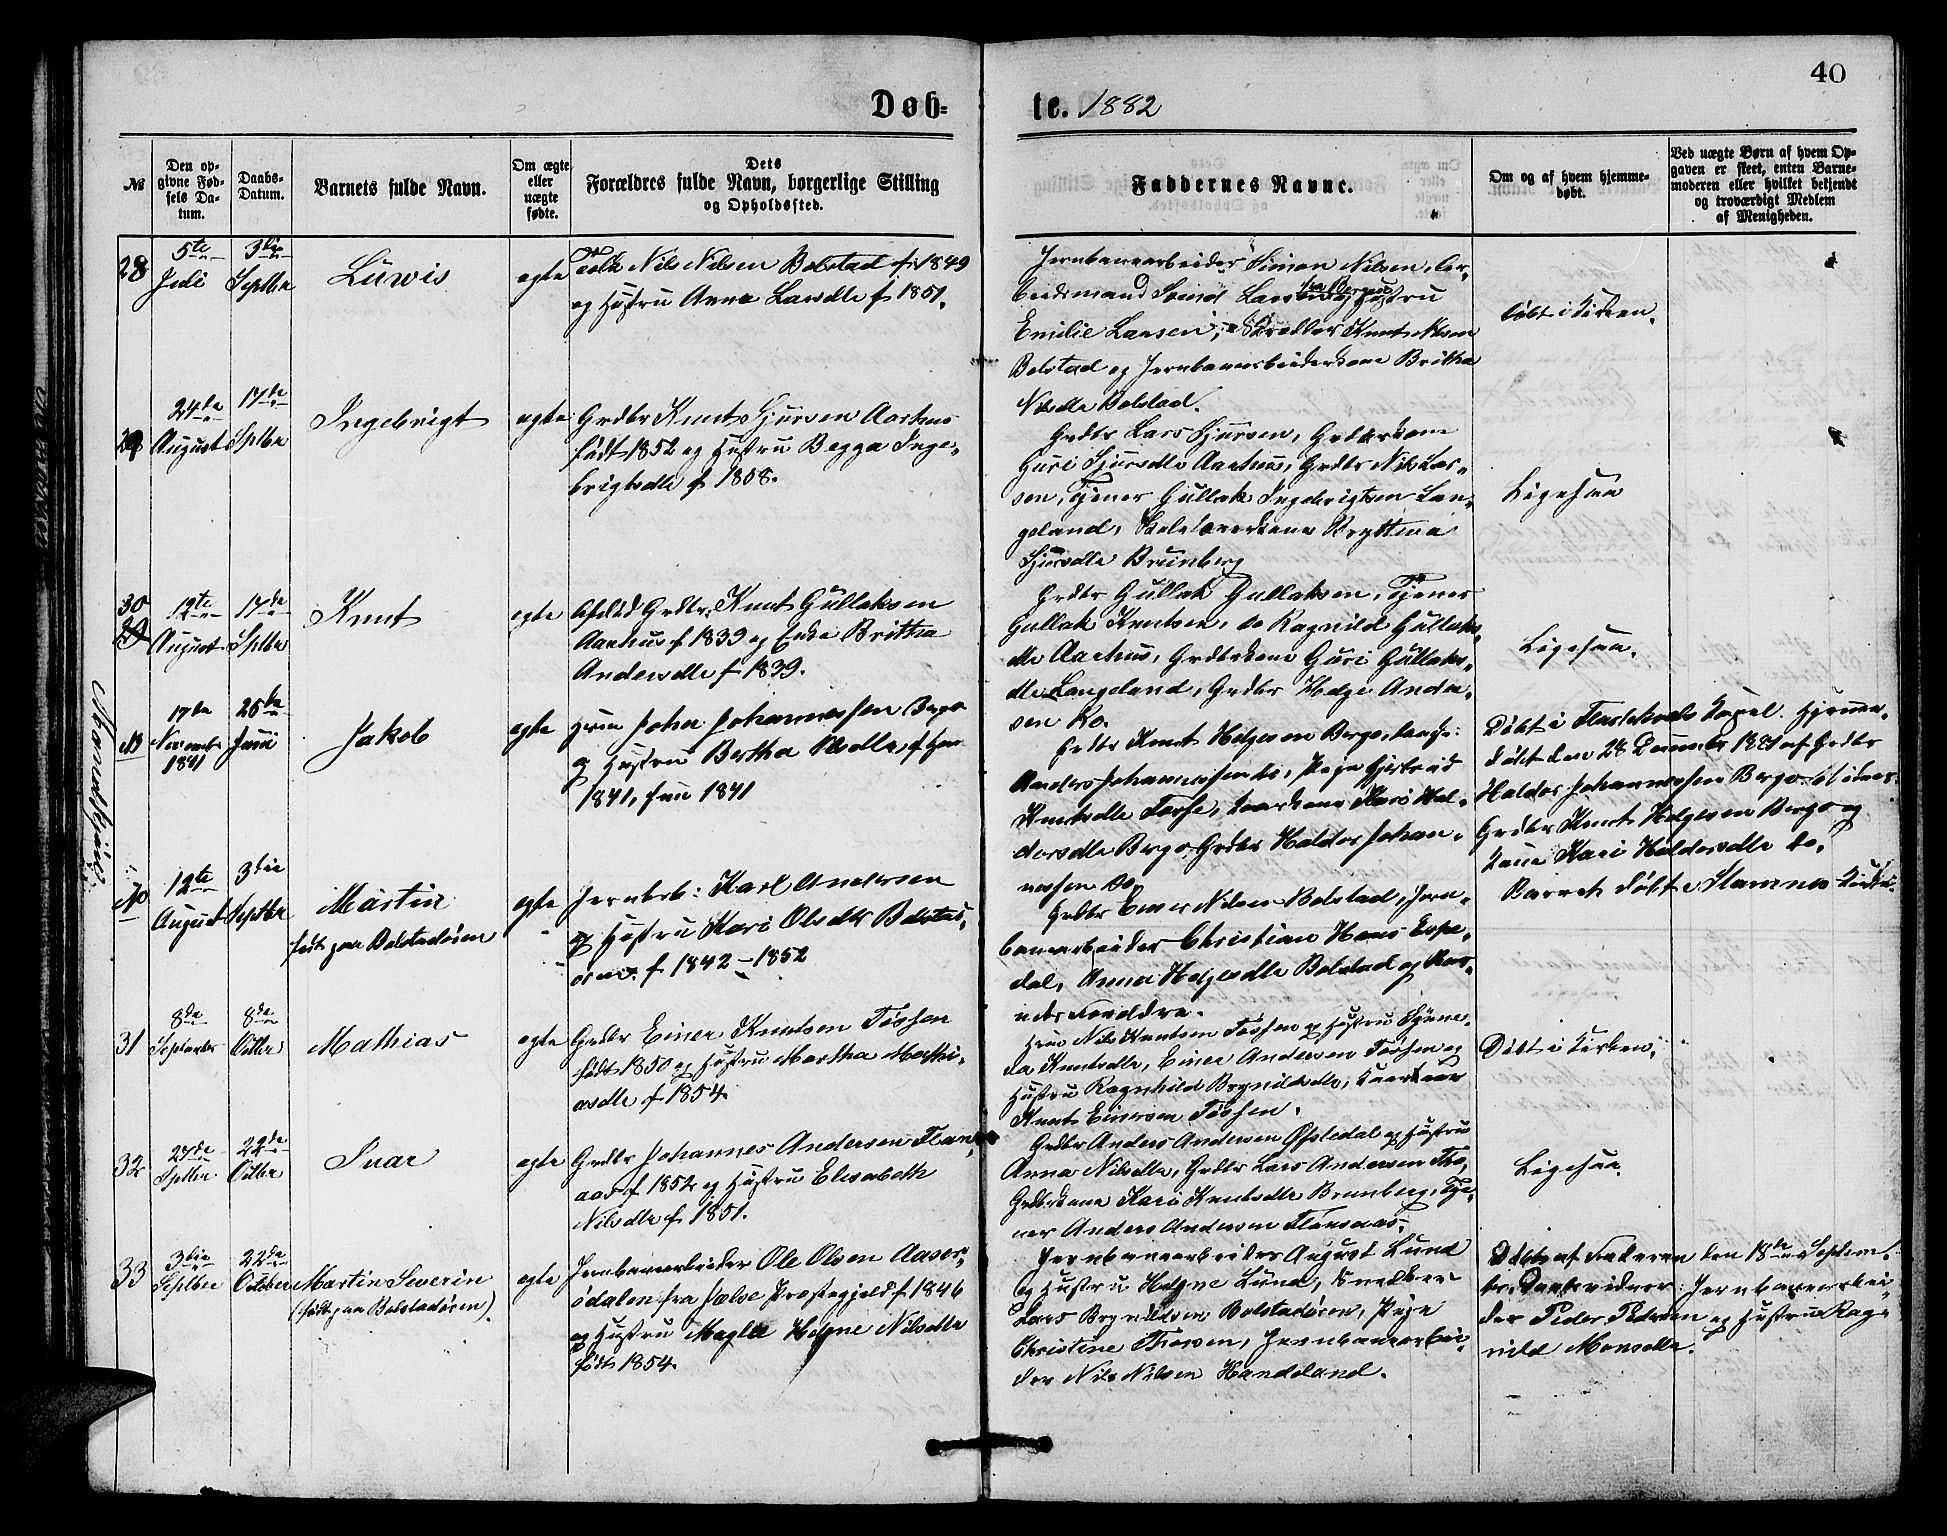 40
Døb-
te. 1882
№
Den op-
givne Fød-
sels Da-
tum.
Daabs-
Datum.
Barnets fulde Navn.
Om ægte
eller
uægte
fødte.
Dets
Forældres fulde Navn, borgerlige Stilling
og Opholdssted.
Faddernes Navne.
Om og af hvem hjemme-
døbt.
Ved uægte Børn af hvem Op-
gaven er skeet, enten Barne-
moderen eller hvilket bekjendt
og troværdigt Medlem
af Menigheden.
28
5te
Juli
3die
Septbr
Luwis
egte
Nils Nilsen Bolstad f. 1849
og Hustru Anna Larsdtr f 1851.
Jernbanearbeider Simon Nilsen, Ar-
beidsmand Svend Larsen og Hustru
fra Bergen
Emilie Larsen, Knut Nilsen
Bolstad og Jernbanearbeiderkone Britha
Nilsdtr Bolstad.
døbt i Kirken.
29
24de
August
17de
Septbr
Ingebrigt
egte
Grdbr Knut Sjursen Aarhus
født 1852 og Hustru Begga Inge-
brigtsdtr f 1858.
Grdbr Lars Sjursen, Grdbrkone
Guri Sjursdtr Aarhus, Grdbr Nils Lar-
sen, Tjener Gullak Ingebrigtsen Lan-
geland, Skolelærerkone Brytteva
Sjursdtr Brunberg
Ligesaa
30
12te
August
17de
Septbr
Knut
egte
Afdød Grdbr. Knut Gullaksen
Aarhus f 1839 og Enke Britha
Andersdtr f 1839.
Grdbr Gullak Gullaksen, Tjener
Gullak Knutsen, do Ragnild Gullaks-
dtr Aarhus, Grdbrkone Guri Gullaks-
dtr Langeland, Grdbr Helge Ander-
sen do.
Ligesaa.
17de
November
1881
25de
Juni
Jakob
egte
Johan Johannessen Bergo
og Hustru Bertha Olsdtr, f
1841, 1841
Grdbr Knut Helgesen Bergo,
Anders Johannessen do, Pige Gjertrud
Knutsdtr Fosse, Kaarkone Kari Hal-
dorsdtr Bergo, Grdbr Haldor Johan-
nessen do.
Døbt i Flatekvals Kapel. Hjemme-
døbt den 28 December 1881 af Grdbr
Haldor Johannessen Bergo.
Grdbr Knut Helgesen Bergo og
Kone Kari Haldorsdtr do.
12te
August
3die
Septbr
Martin
født paa Bolstadøren
egte
Jernbarb: Karl Andersen
og Hustru Kari Olsdtr Bolstad-
øren. f 1842-1852
Grdbr Einer Nilsen Bolstad, Jern-
banearbeider Christian Hans Espe-
dal, Anna Helgesdtr Bolstad og Bar-
nets Forældre.
Barnet døbt i Stamnes Kirke.
31
8de
September
8de
Octbr
Mathias
egte
Grdbr Einer Knutsen Fosse
født 1850 og Hustru Martha Mathi-
asdtr f 1854.
Nils Knutsen Fosse og Hustru
Knutsdtr, Einer Andersen Fosse og
Hustru Ragnhild Brynildsdtr, Kaarkar
Knut Einersen Fosse.
Døbt i Kirken.
32
Septbr
22de
Octbr
Ivar
egte
Grdbr Johannes Andersen
f 1852 og Hustru Elisabeth
Nilsdtr f 1851.
Grdbr Anders Andersen Øfstedal og Hustru
Anna Nilsdtr, Grdbr Lars Andersen
Grdbrkone Kari Knutsdtr Brunberg, Tje-
ner Anders Andersen
Ligesaa.
33
3die
Septbr
22de
October
Martin Severin
(født paa Bolstadøren).
egte
Jernbanearbeider Ole Olsen Aaser-
ødalen fra Præstegjeld f 1846
og Hustru Helgne Nilsdtr
født 1854.
Jernbanearbeider August Lund
og Hustru Helgne Lund, Snedker
Lars Brynildsen Bolstadøren, Pige
Christine Thorsen, Jernbanearbei-
der Nils Nilsen Handeland.
Døbt af Faderen den 18de Septem-
ber. Daabsvidner: Jernbanearbei-
der Peder Pedersen og Hustru Rag-
nild Monsdtr.